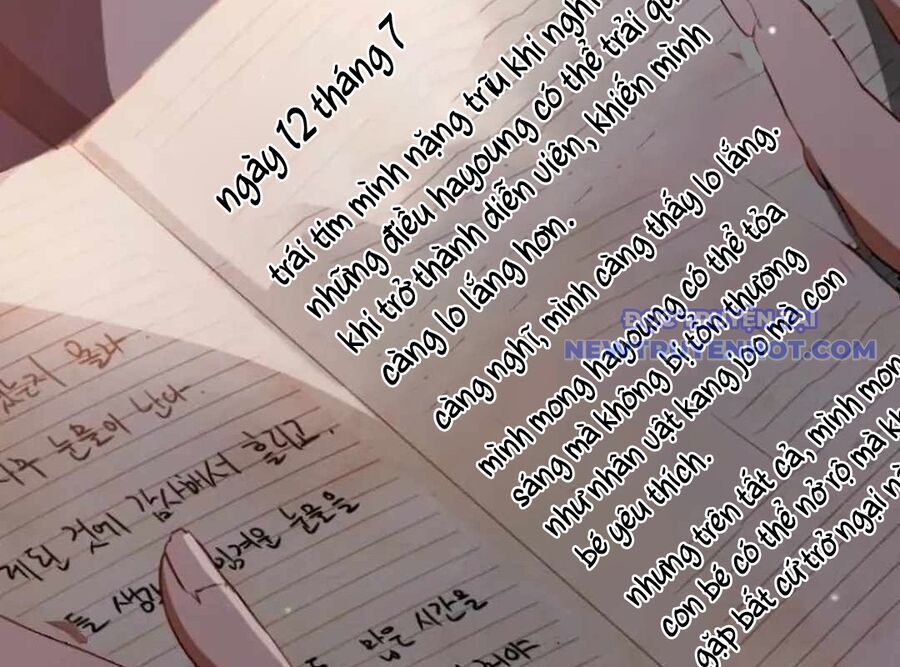 ngày 12 tháng 7
trái tim mình nặng trĩu khi nghĩ
những điều hayoung có thể trải qua
khi trở thành diễn viên, khiến mình
càng lo lắng hơn.
càng nghĩ, mình càng thấy lo lắng.
mình mong hayoung có thể tỏa
sáng mà không bị tổn thương
như nhân vật kang joo mà con
bé yêu thích.
nhưng trên tất cả, mình mon
con bé có thể nở rộ mà kh
gặp bất cứ trở ngại nà
몰라
눈물이 난다.
것에 감사해서 흘리고.
눈물을
들
많은 시간을
NEWTRUYENHOT.COM